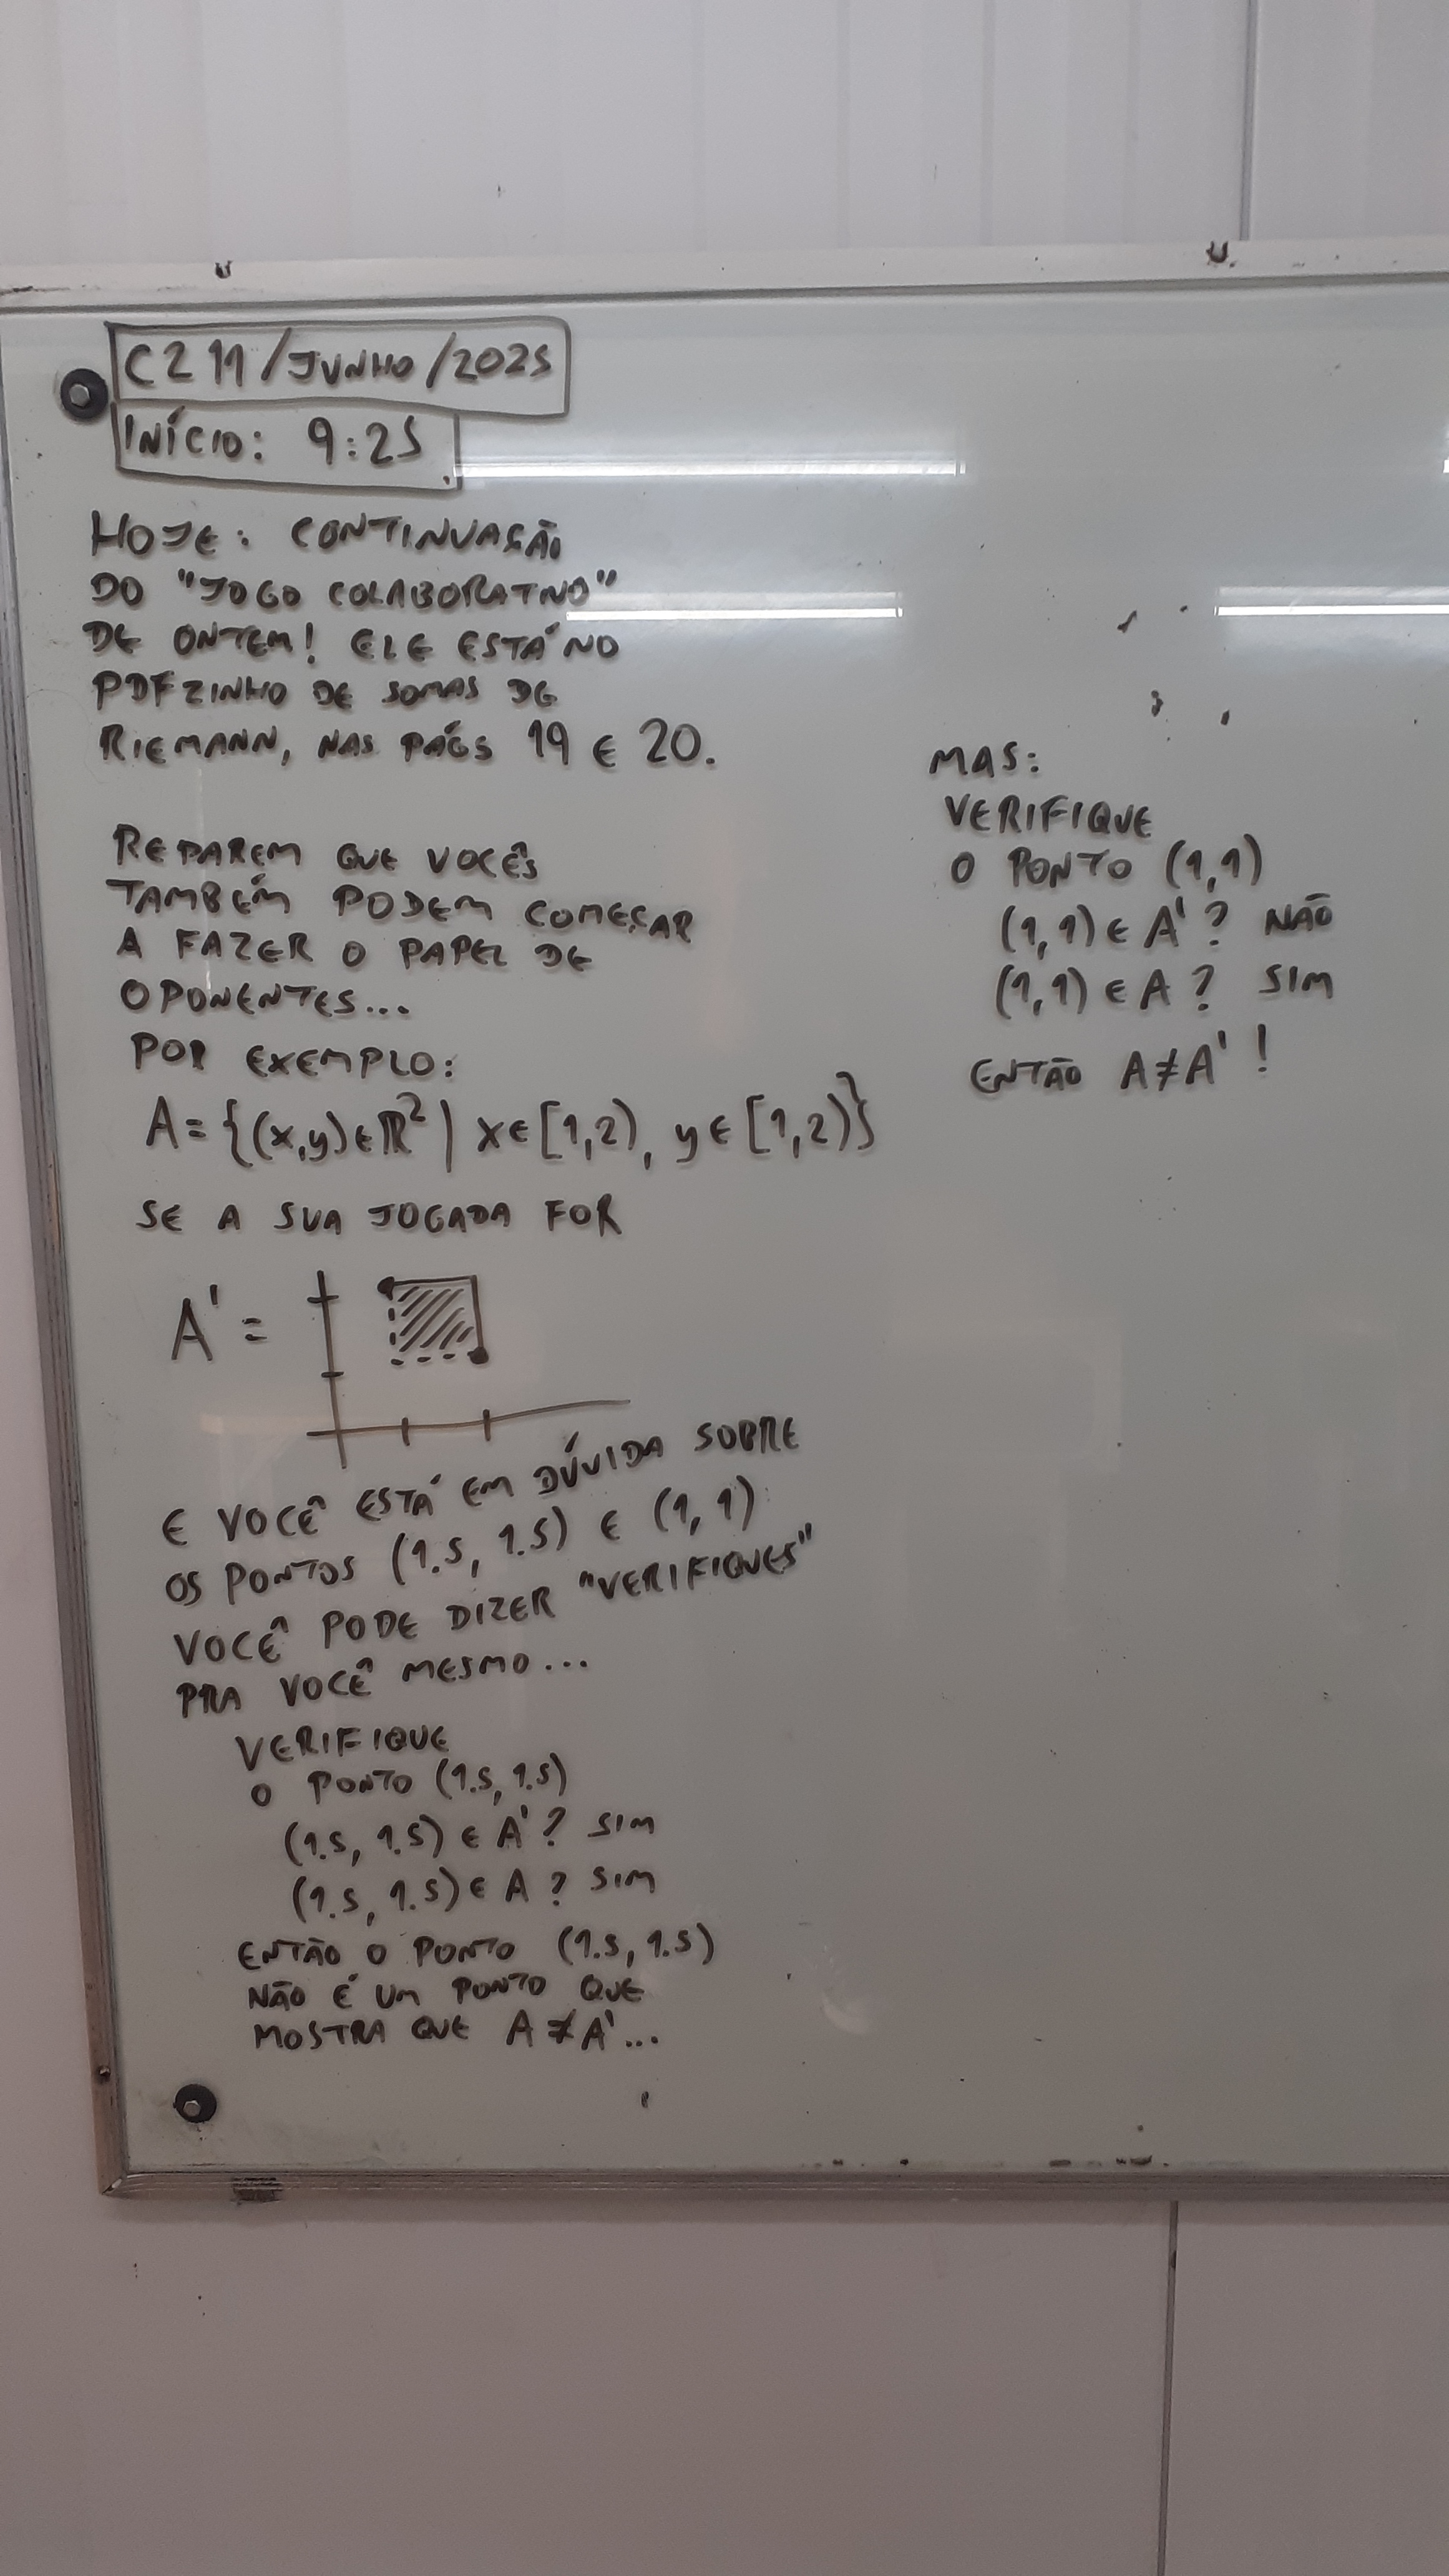 C2 11/JUNHO/2025
INÍCIO: 9:25
HOJE: CONTINUAÇÃO
DO "JOGO COLABORATIVO"
DE ONTEM! ELE ESTÁ NO
PDFZINHO DE SOMAS DE
RIEMANN, NAS PÁGS 19 E 20.
REPAREM QUE VOCÊS
TAMBÉM PODEM COMEÇAR
A FAZER O PAPEL DE
OPONENTES...
POR EXEMPLO:
A={(x,y)∈ℝ²| x∈[1,2), y∈[1,2)}
SE A SUA JOGADA FOR
A' =
E VOCÊ ESTÁ EM DÚVIDA SOBRE
OS PONTOS (1.5, 1.5) E (1, 1)
VOCÊ PODE DIZER "VERIFIQUES"
PRA VOCÊ MESMO...
VERIFIQUE
O PONTO (1.5, 1.5)
(1.5, 1.5) ∈ A'? SIM
(1.5, 1.5) ∈ A? SIM
ENTÃO O PONTO (1.5, 1.5)
NÃO É UM PONTO QUE
MOSTRA QUE A≠A'...
MAS:
VERIFIQUE
O PONTO (1,1)
(1,1)∈A'? NÃO
(1,1)∈A? SIM
ENTÃO A≠A'!